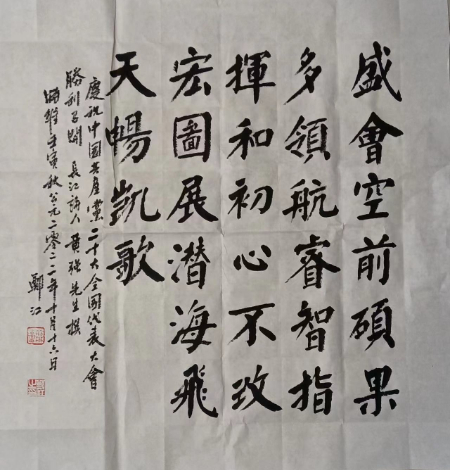 盛會空前碩果
多領航睿智指
揮和初心不改
宏圖展潜海飛
天暢凱歌
慶祝中國共産黨二十大全國代表大會
勝利召開 長江詩人黄强先生撰
時維壬寅秋公元二零二二年十月十六日
鄭江